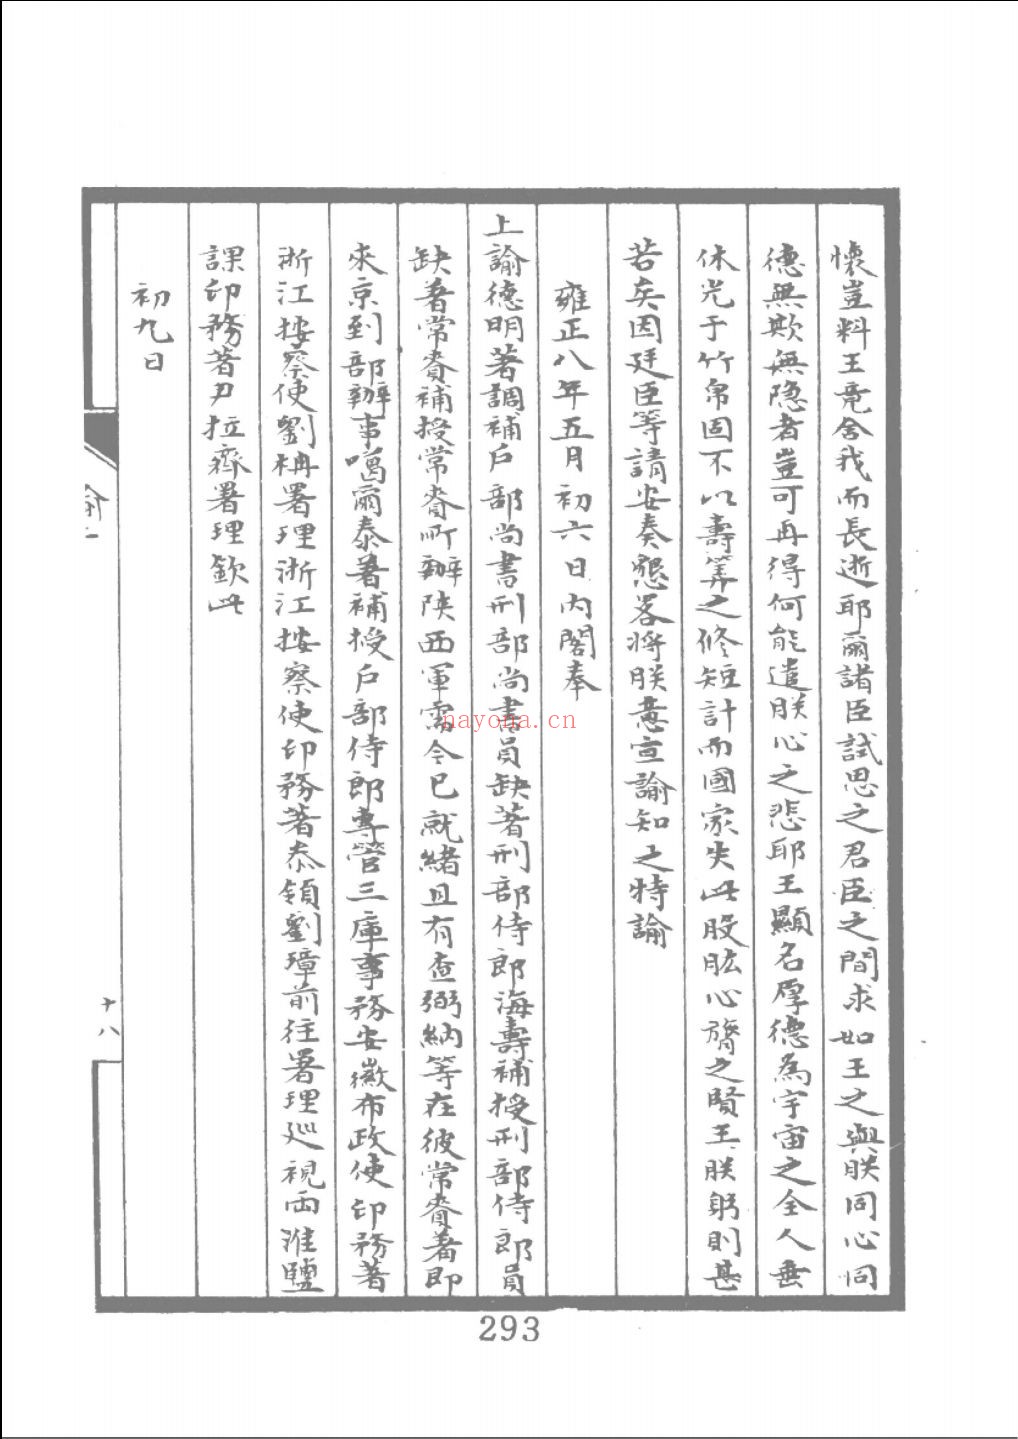 懷豈料王竟舍我而長逝耶爾諸臣試思之君臣之間求如王之與朕同心同
德無欺無隐者豈可再得何能遣朕心之悲耶王顯名厚德為宇宙之全人垂
休光于竹帛固不以壽筭之修短計而國家失此股肱心膂之賢王朕躬則甚
若矣因廷臣等請安奏懇畧將朕意宣諭知之特諭
雍正八年五月初六日內閣奉
上諭德明著調補戶部尚書刑部尚書員缺著刑部侍郎海壽補授刑部侍郎員
缺著常賚補授常賚所辦陝西軍需今已就緒且有查弼納等在彼常賚著即
來京到部辦事噶爾泰著補授戶部侍郎專管三庫事務安徽布政使印務著
浙江按察使劉柟署理浙江按察使印務著叅領劉璋前往署理廵視兩淮鹽
課印務著尹拉齊署理欽此
初九日
諭一
十八
293
nayona.cn